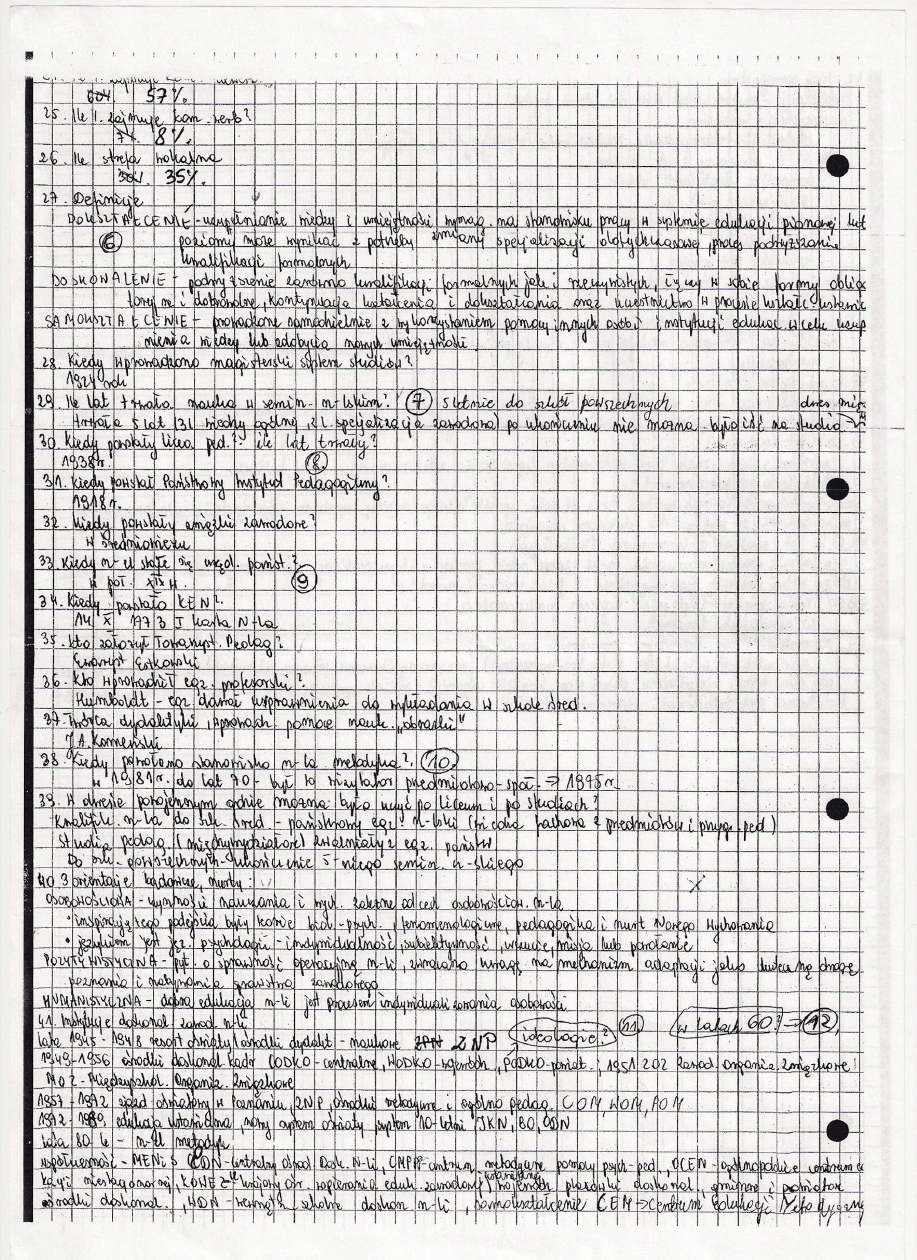 57%.
25. Ile % zajmuje kom. werb?
8%.
26. Ile strefa wokalna
35%.
27. Definicje
DOKSZTAŁCENIE - uzupełnianie wiedzy i umiejętności wymag. na stanowisku pracy w systemie edukacji pionowej lub
6 poziomy może wynikać z potrzeby zmiany specjalizacji dotychczasowej, proces podwyższania
kwalifikacji formalnych
DOSKONALENIE - podwyższenie zarówno kwalifikacji formalnych jak i rzeczywistych, łączy w sobie formy obliga
toryjne i dobrowolne, kontynuacja kształcenia i dokształcania oraz uczestnictwo w procesie
SAMOKSZTAŁCENIE - prowadzone samodzielnie z wykorzystaniem pomocy innych osób i instytucji edukac. w celu uzup
nienia wiedzy lub zdobycia nowych umiejętności.
28. Kiedy wprowadzono magisterski system studiów?
29. Ile lat trwała nauka w semin. n-lskim? 7 5 letnie do szkół powszechnych
trwała 5 lat 3 l. wiedzy ogólnej, 2 l. specjalizacja zawodowa po ukończeniu nie można było iść na studia
30. Kiedy powstały licea ped.? ile lat trwały?
1938r. 8.
31. Kiedy powstał Państwowy Instytut Pedagogiczny?
1918r.
32. Kiedy powstały związki zawodowe?
w średniowieczu
33. Kiedy n-el stał się urzęd. państ.?
w poł. XIX w. 9
34. Kiedy powstała KEN?
14 X 1773 I karta N-la
35. Kto założył Towarzyst. Pedag?
Ewaryst Estkowski
36. Kto wprowadził egz. profesorski?
Humboldt - egz dawał usprawnienia do wykładania w szkole śred.
37. Twórca dydaktyki, wprowadz. pomoce nauk. „obrazki"
J.A. Komeński
38. Kiedy powołano stanowisko n-la metodyka? 10.
w 1981r. do lat 70- był to wizytator przedmiotowo-społ. → 1975r.
39. W okresie powojennym gdzie można było uczyć po liceum i po studiach?
Kwalifik. n-la do szk. śred. - państwowy egz. n-lski (wiedza fachowa z przedmiotów i przyg. ped)
Studia pedag. (międzywydziałowe) zwalniały z egz. państw
Do szk. powszechnych - ukończenie 5-niego semin. n-skiego
40. 3 orientacje badawcze, nurty:
OSOBOWOŚCIOWA - wyniki nauczania i wych. zależne od cech osobowościow. n-la
• inspirują tego podejścia były teorie biol-psych., fenomenologiczne, pedagogika i nurt Nowego Wychowania
• językiem jest jęz. psychologii - indywidualność, subiektywność, uczucie, misja lub powołanie
POZYTYWISTYCZNA - pyt. o sprawność operacyjną n-li, zwracano uwagę na mechanizm adaptacji jako
poznania i zawodowego
HUMANISTYCZNA - dobra edukacja n-li jest procesem indywidualizowania osobowości
41. Instytucje doskonal. zawod n-li ideologie? 11 w latach 60? → 12
lata 1945-1948 resort oświaty ośrodki dydakt - naukowe ZNP
1949-1956 ośrodki doskonal kadr CODKO - centralne, WODKO - wojewódz, PODKO - powiat., 1951 ZOZ Zawod. Organiz. Związkowe
MOZ - Międzyszkol. Organiz. Związkowe
1957-1972 zjazd oświatowy w Poznaniu, ZNP, ośrodki metodyczne i ogólno pedag. COM, WOM, POM
1972-1980, edukacja ustawiczna, nowy system oświaty system 10-letni IKN,
lata 80-te - n-el metodyk
współczesność - MENiS CODN - centralny ośrod. Dosk. N-li, CMPPP - centrum metodyczne pomocy psych-ped., OCEN - ogólnopolskie centrum e
dukacji niestacjonarnej, KOWEZ krajowy ośr. wspierania eduk. zawodowej, wojewódz. placówki doskonal, gminne i powiatow
ośrodki doskonal., WDN - wewnątrz szkolne doskon n-li, samokształcenie CEM → Centrum edukacji